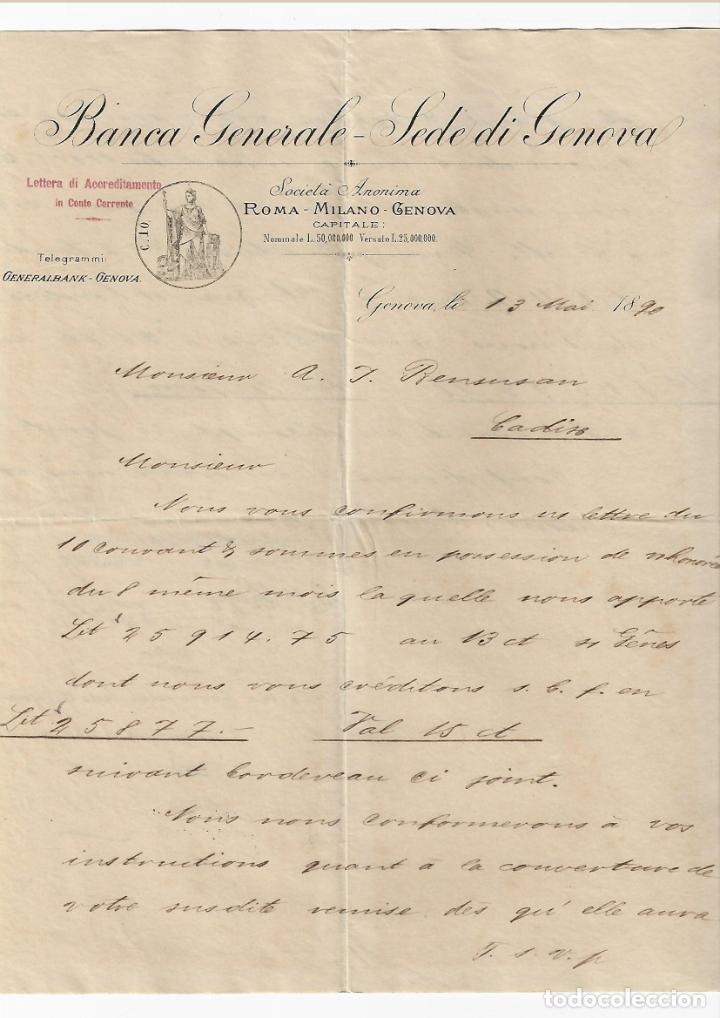 Banca Generale - Sede di Genova
Lettera di Accreditamento
in Conto Corrente
C. 10
Telegrammi:
GENERALBANK - GENOVA.
Società Anonima
ROMA - MILANO - GENOVA
CAPITALE:
Nominale L. 50,000,000 Versato L. 25,000,000.
Genova, li 13 Mai 1890
Monsieur A. J. Bensusan
Cadix
Monsieur
Nous vous confirmons n/ lettre du
10 courant & sommes en possession de v/honorée
du 8 même mois laquelle nous apporte
Lit 25914.75 au 13 ct s/ Gênes
dont nous vous créditons s. b. f. en
Lit 25877.- Val 15 ct
suivant bordereau ci joint.
Nous nous conformerons à vos
instructions quant à la couverture de
votre susdite remise dès qu'elle aura
T. s. v. p
todocoleccion